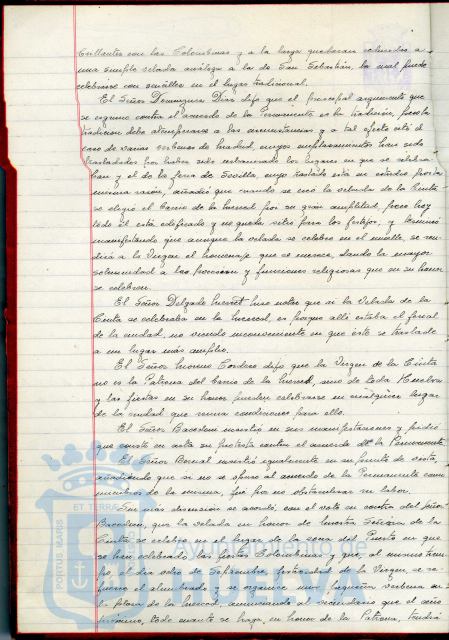 brillantes con las Colombinas y a la larga quedaran reducidas a
una simple velada análoga a la de San Sebastián, la cual puede
celebrarse con en el lugar tradicional.
El Señor Domínguez Días dijo que el principal argumento que
se esgrime contra el acuerdo de la Permanente es la tradición, pero la
tradición debe atemperarse a las circunstancias y a tal efecto citó el
caso de varias verbenas de Madrid, cuyos emplazamientos han sido
trasladados por haber sido los lugares en que se celebra-
ban y el de la feria de Sevilla, cuyo traslado está en estudio por la
misma razón, añadió que cuando se creó la velada de la Cinta
se eligió el barrio de la Merced por su gran amplitud, pero hoy
todo él está edificado y no queda sitio para los festejos, y terminó
manifestando que aunque la velada se celebre en el muelle, se ren-
dirá a la Virgen el homenaje que se merece, dando la mayor
solemnidad a las procesión y funciones religiosas que en su honor
se celebren.
El Señor Delgado hizo notar que si la Velada de la
Cinta se celebraba en la Merced, es porque allí estaba el final
de la ciudad, no viendo inconveniente en que éste se traslade
a un lugar más amplio.
El Señor Moreno Cordero dijo que la Virgen de la Cinta
no es la Patrona del barrio de la Merced, sino de toda Huelva
y las fiestas en su honor pueden celebrarse en cualquier lugar
de la ciudad que reuna condiciones para ello.
El Señor insistió en sus manifestaciones y pidió
que conste en acta su protesta contra el acuerdo de la Permanente.
El Señor Bernal insistió igualmente en su punto de vista,
añadiendo que si no se opuso al acuerdo de la Permanente como
miembro de la misma, fué por no obstaculizar su labor.
Sin más discusión se acordó, con el voto en contra del Señor
que la velada en honor de Nuestra Señora de la
Cinta se celebre en el lugar de la zona del Puerto en que
se han celebrado las fiestas Colombinas y que, al mismo tiem-
po, el día ocho de Septiembre, festividad de la Virgen, se re-
fuerce el alumbrado y se organice una pequeña verbena en
la plaza de la Merced, anunciando al vecindario que el año
próximo, todo cuanto se haga, en honor de la Patrona, tendrá
ET TERRÆ
PORTUS MARIS